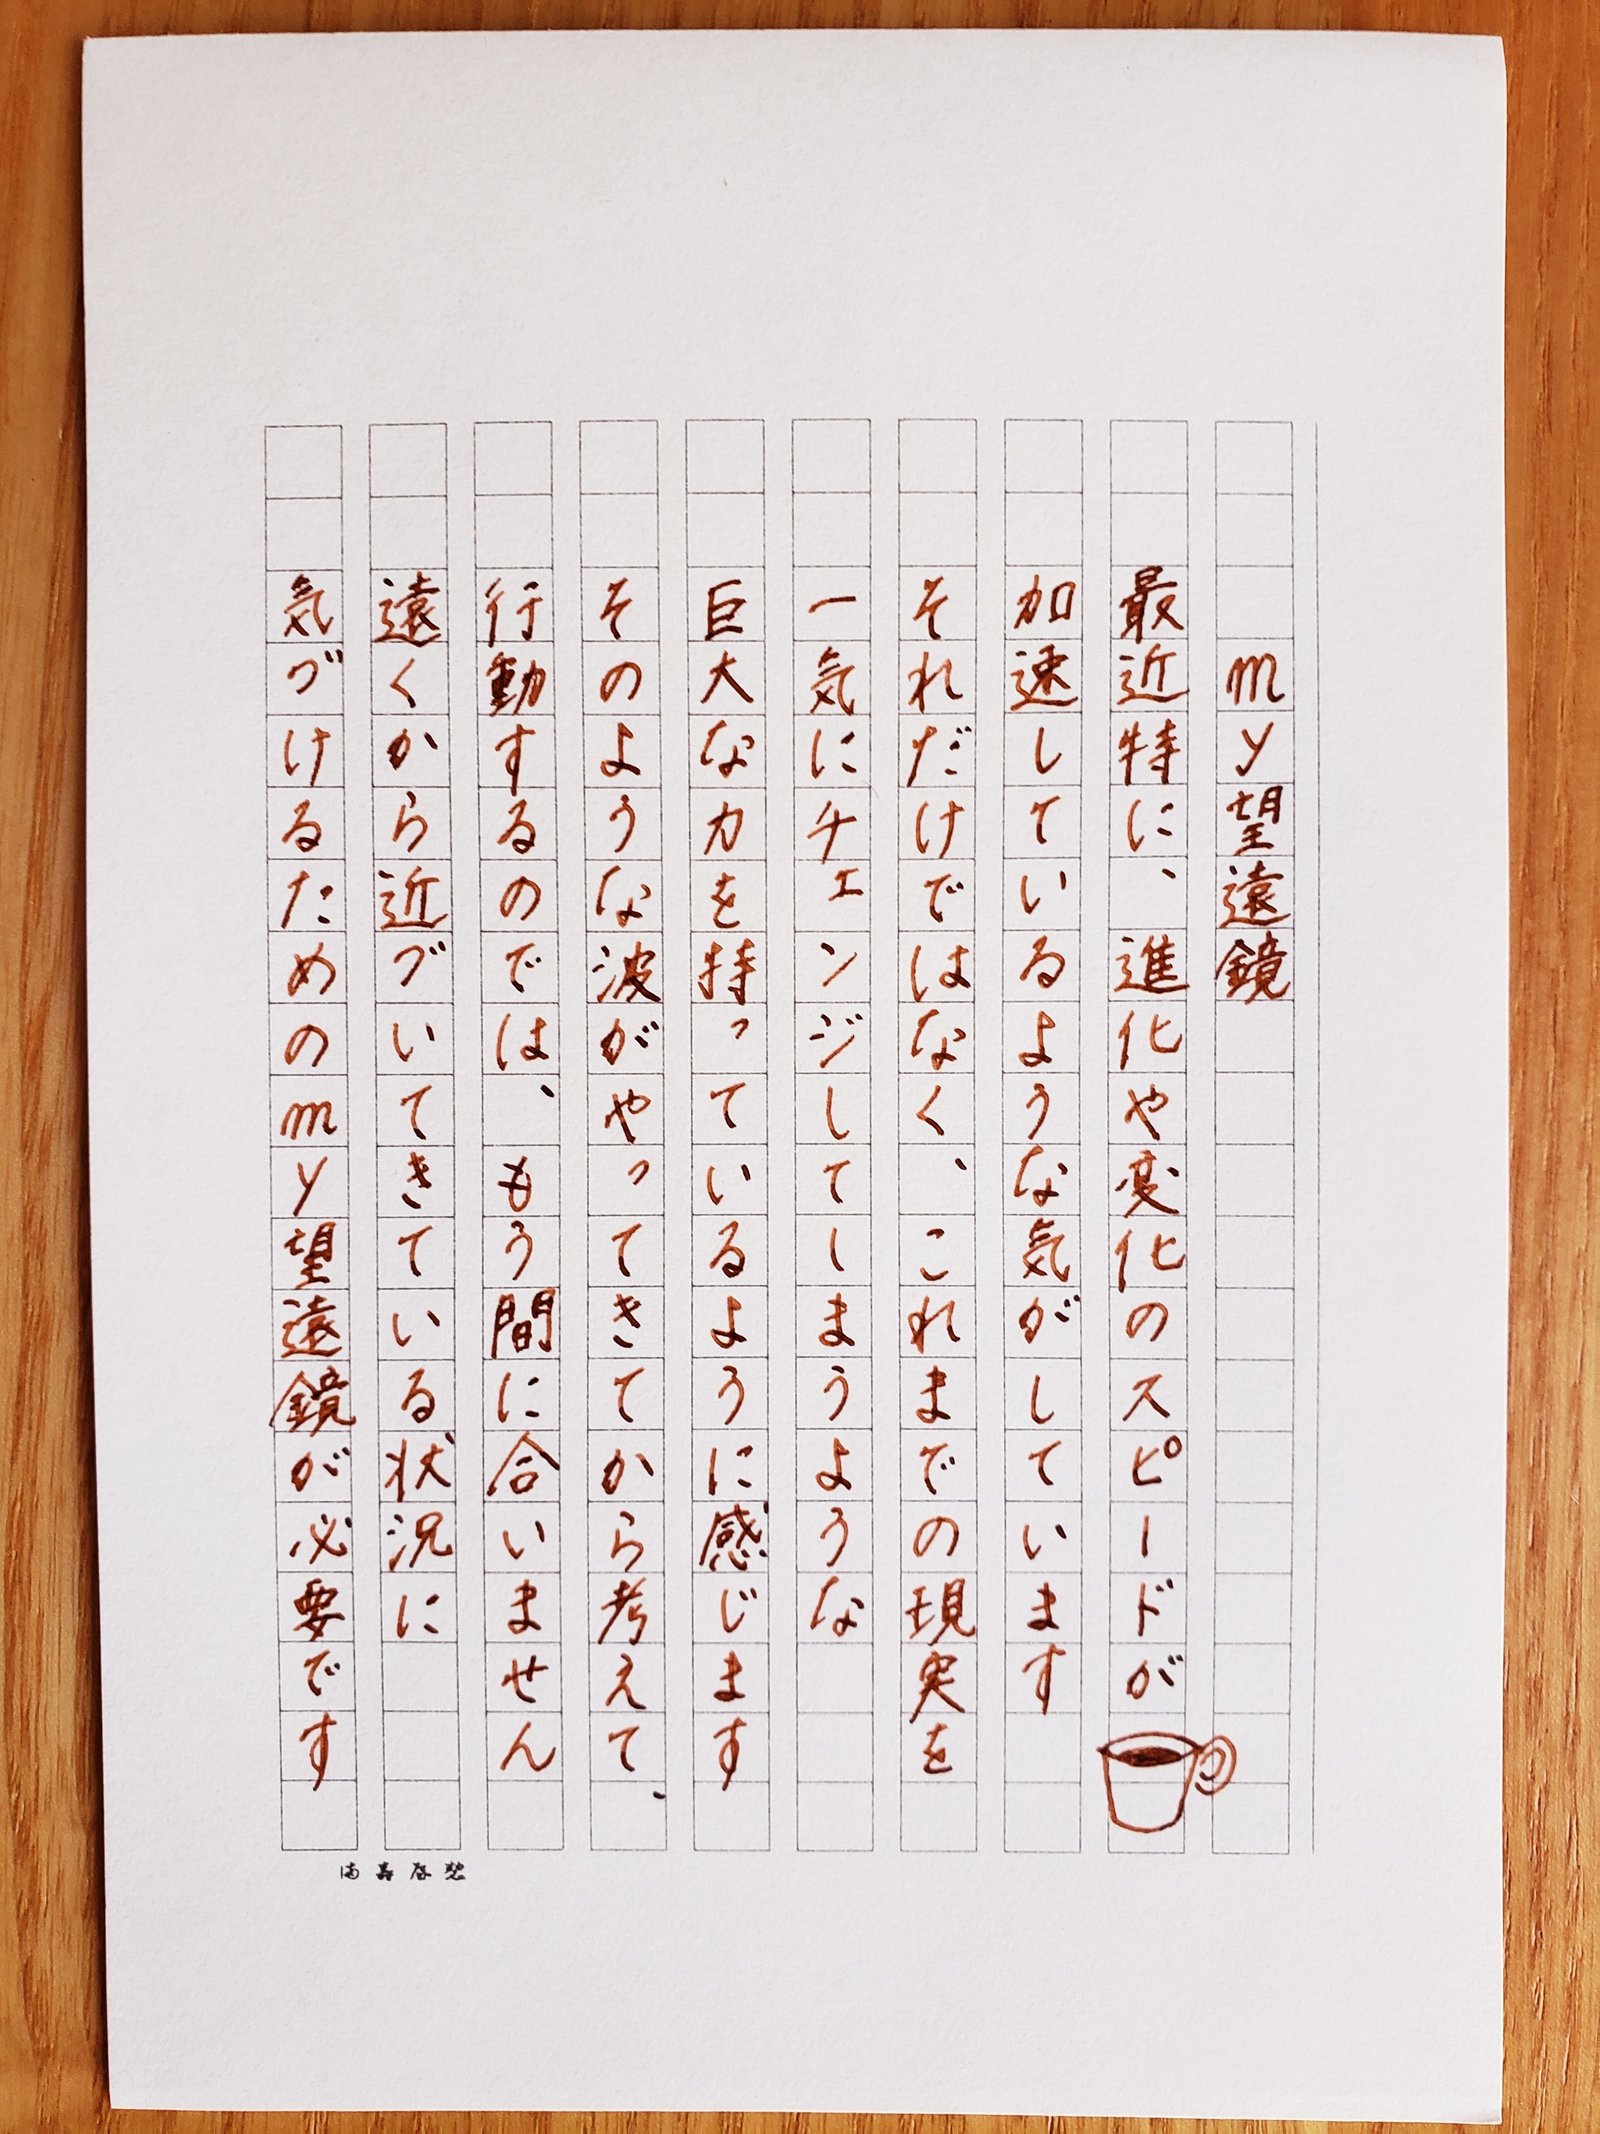 my望遠鏡
最近特に、進化や変化のスピードが
加速しているような気がしています
それだけではなく、これまでの現実を
一気にチェンジしてしまうような
巨大な力を持っているように感じます
そのような波がやってきてから考えて、
行動するのでは、もう間に合いません
遠くから近づいてきている状況に
気づけるためのmy望遠鏡が必要です